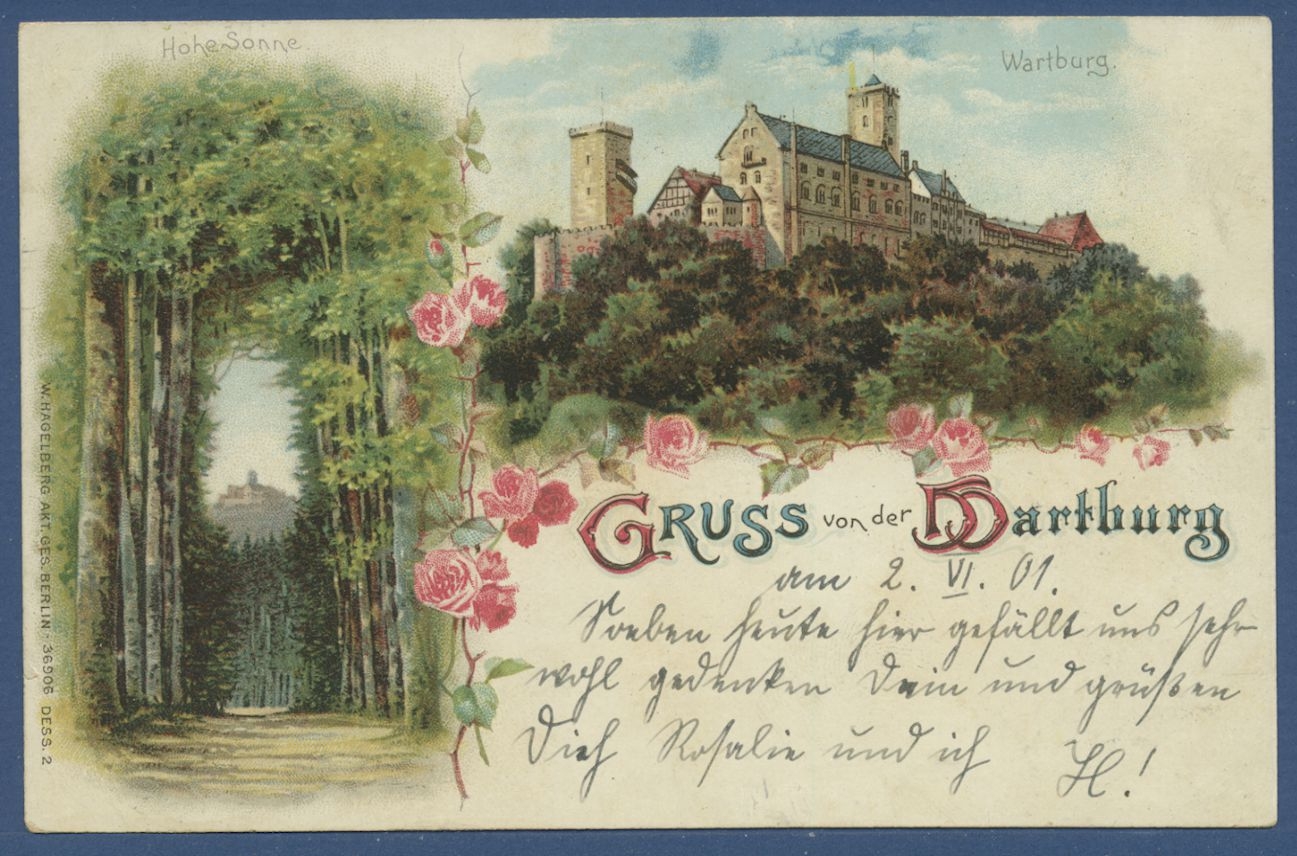 Hohe Sonne.
Wartburg.
W. HAGELBERG AKT. GES. BERLIN: 36906 DESS. 2
GRUSS von der Wartburg
am 2. VI. 01.
Soeben heute hier gefällt uns sehr
wohl gedenken Dein und grüßen
Dich Rosalie und ich H!